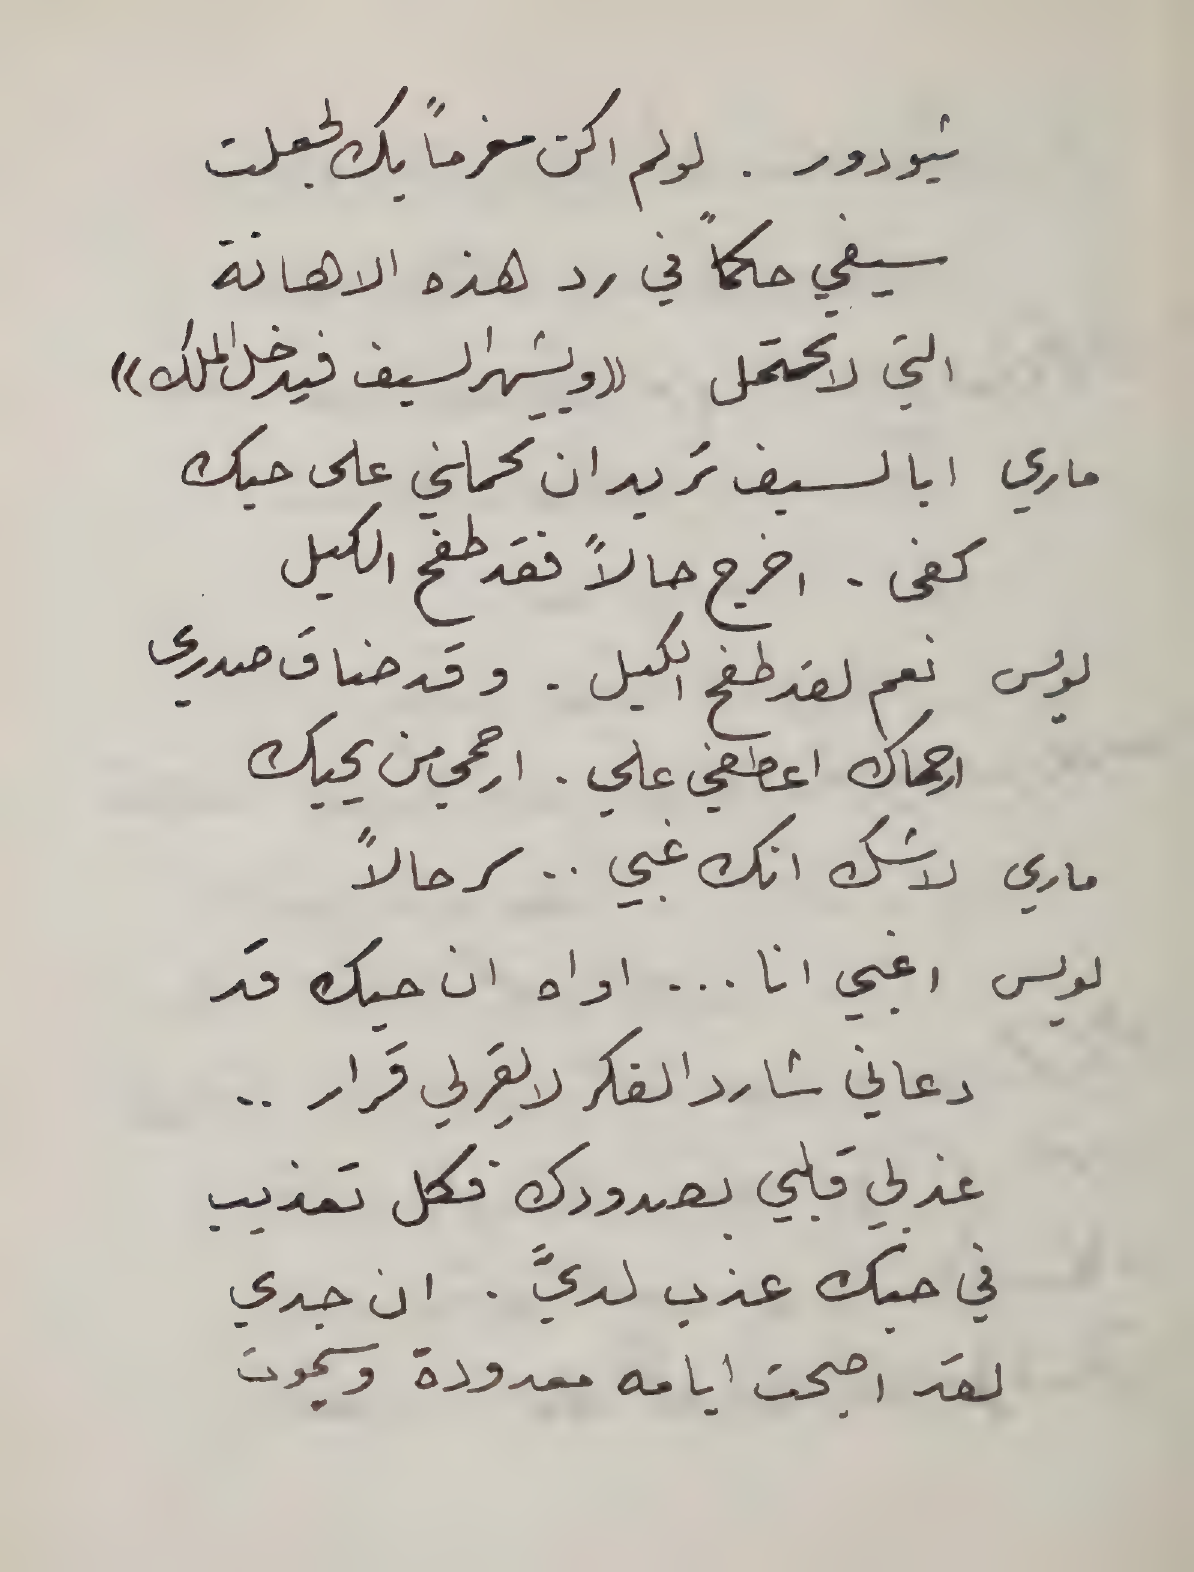 ثيودور . لولم اكن مغرماً بك لجعلت
سيفي حكماً في رد هذه الاهانة
التي لاتحتمل «ويشهر السيف فيدخل الملك»
ماري ابالسيف تريد ان تحملني على حبك
كفى . اخرج حالاً فقد طفح الكيل
لويس نعم لقد طفح الكيل . وقد ضاق صدري
ارحماك اعطفي علي . ارحمي من يحبك
ماري لاشك انك غبي .. سر حالاً
لويس اغبي انا ... اواه ان حبك قد
دعاني شارد الفكر لايقرلي قرار ..
عذبي قلبي بصدودك فكل تعذيب
في حبك عذب لديَّ . ان جدي
لقد اصبحت ايامه معدودة وسيموت